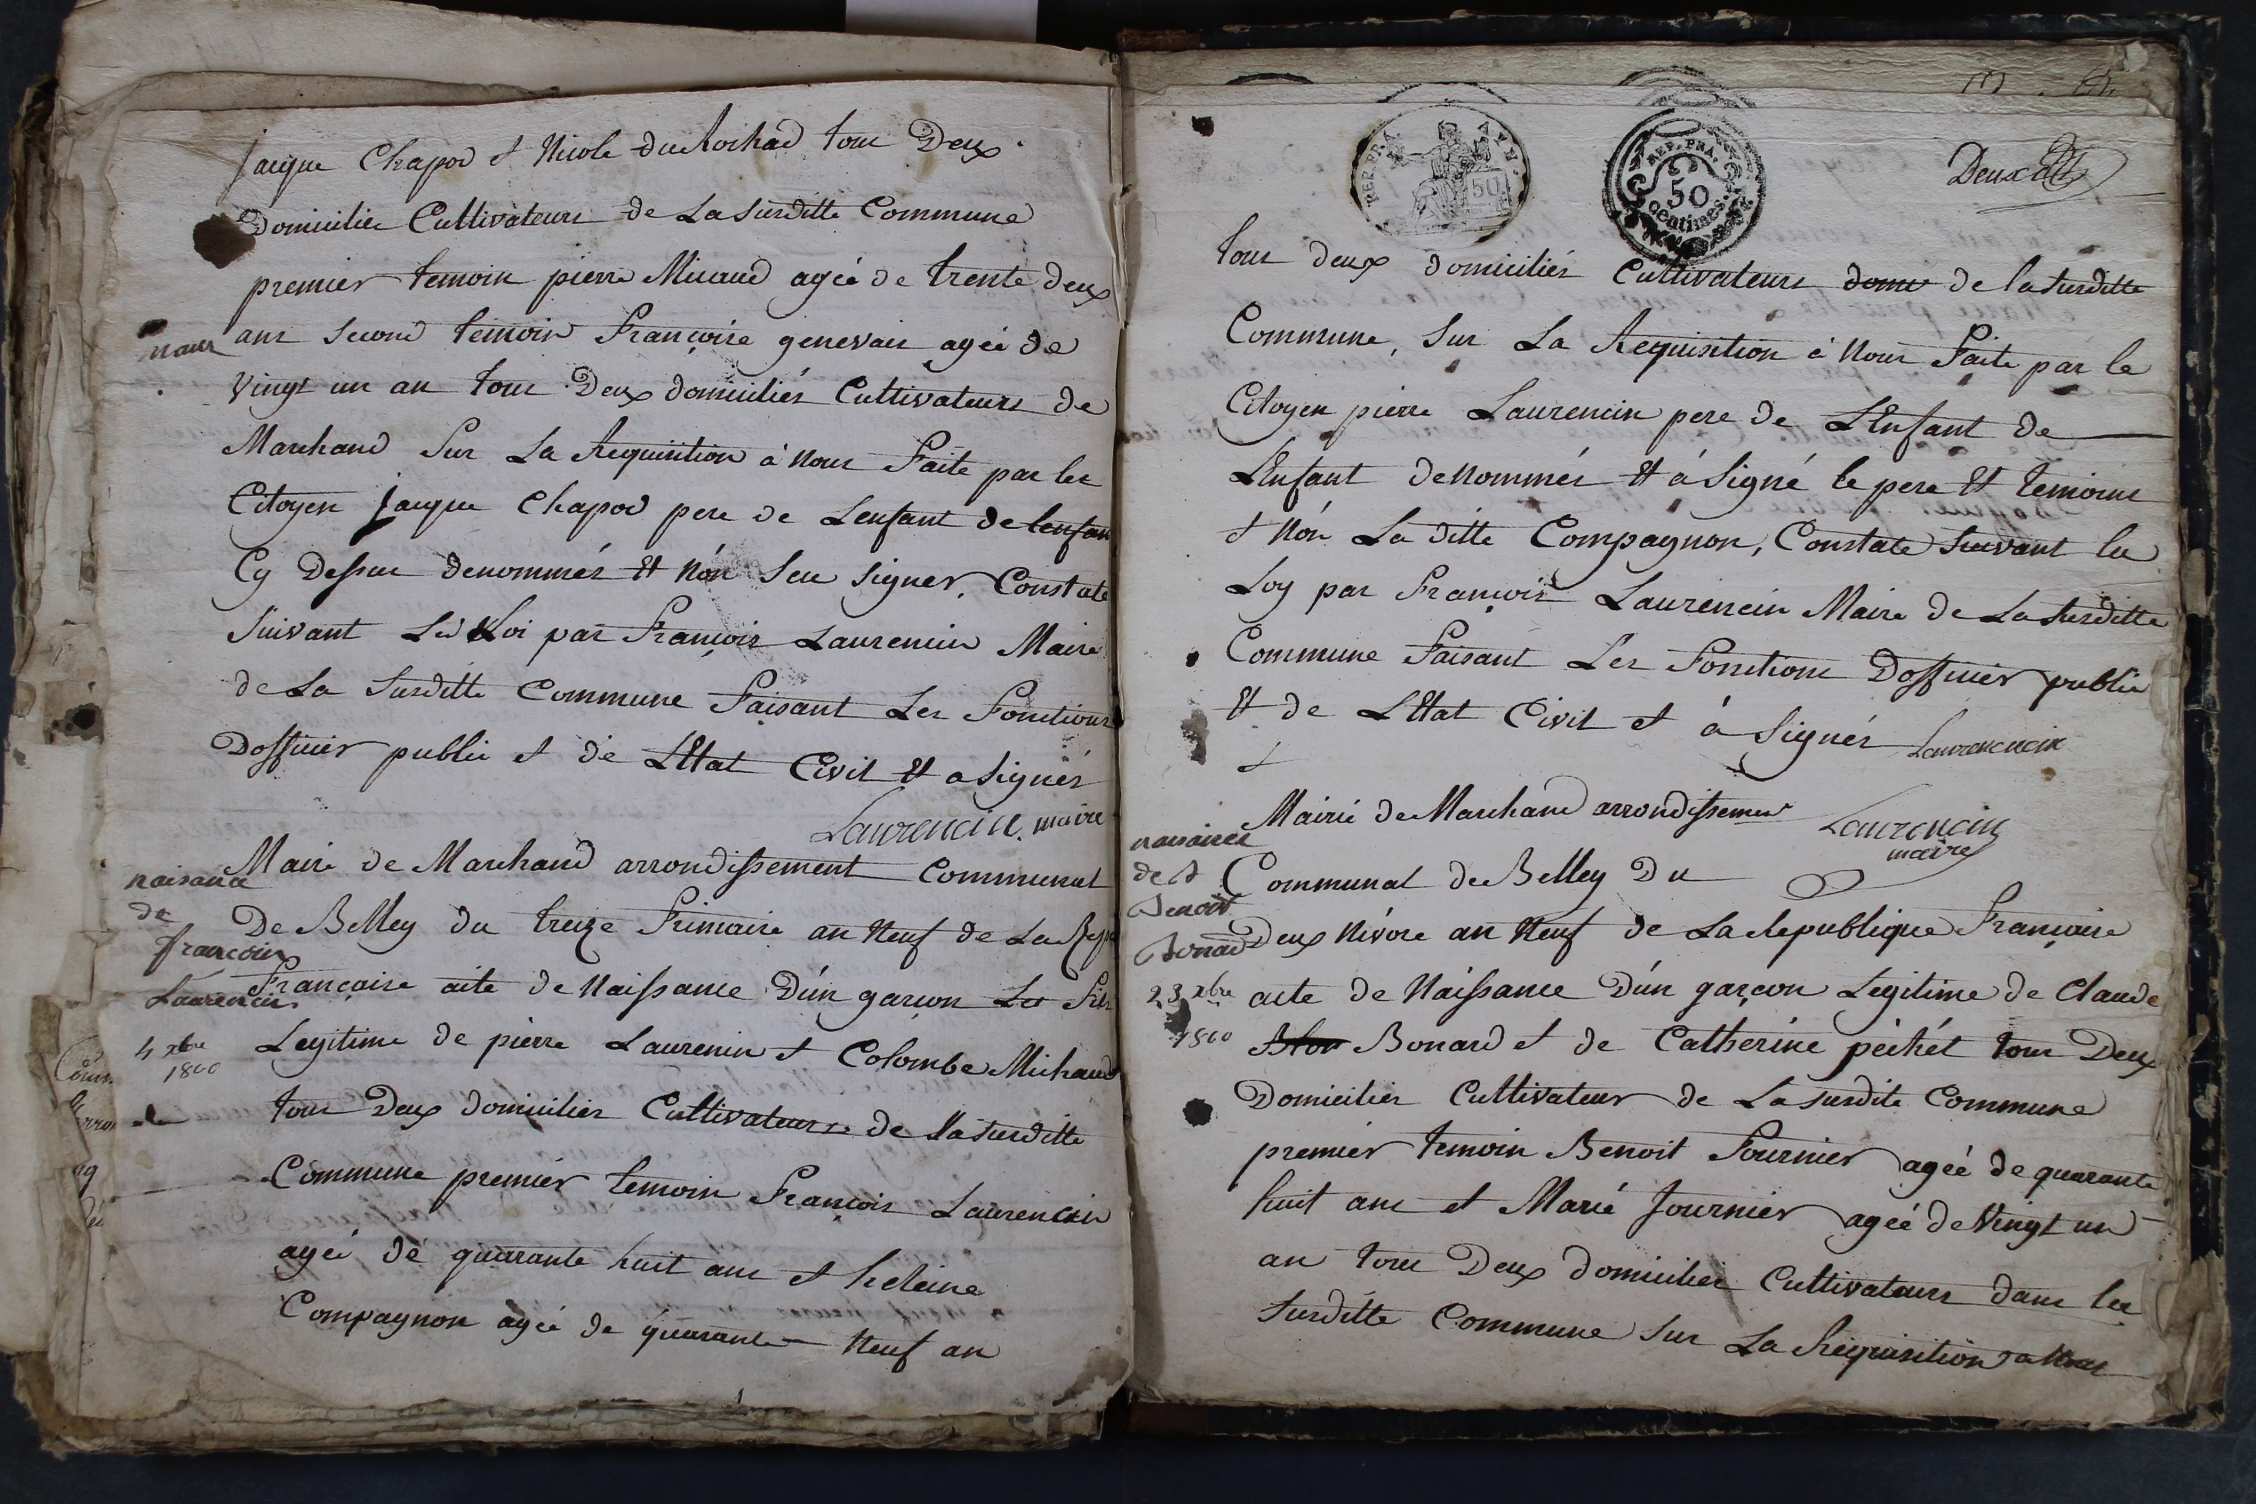 jacque Chapod et Nicole du Rochad tous Deux
Domicilie Cultivateurs de La Susditte Commune
premier temoin pierre Micaud agée de trente deux
ans second temoin Françoise genevais agée de
vingt un an tous Deux domiciliés Cultivateurs de
Marchand Sur La Requisition à Nous Faite par le
Citoyen jacque Chapod pere de Lenfant de lenfan
Cy Dessus denommés Et Nón Seu Signer, Constate
Suivant La Loi par François Laurencin Maire
de La Susditte Commune Faisant Les Fonctions
Dofficier public et de LEtat Civil Et a Signés
Laurencin maire
naisance
de
françois
Laurencin
4 xbre
1800
Maire de Marchand arrondissement Communal
De Belley du treize Frimaire an Neuf de La Rep
Françoise acte de Naissance D'ún garcon Le Fils
Legitime de pierre Laurencin et Colombe Michaud
tous Deux domicilies Cultivateurs de La Susditte
Commune premier temoin François Laurencin
agée de quarante huit ans et heleine
Compagnon agée de quarante Neuf an
REP. FRA.
50
REP. FRA.
50
Centimes.
Deux
tous deux domiciliés Cultivateurs domi de la Susditte
Commune, Sur La Requisition à Nous Faite par le
Citoyen pierre Laurencin pere de LEnfant de
LEnfant deNommés Et à Signé le pere Et temoins
et Nón La ditte Compagnon, Constate Suivant la
Loy par François Laurencin Maire de La Susditte
Commune Faisant Les Fonctions Dofficier public
Et de LEtat Civil et à Signés Laurencin
Laurencin
maire
naisance
de
Benoit
Bonard
23 xbre
1800
Mairie de Marchand arrondissement
Communal de Belley Du
Deux Nivóse an Neuf de La Republique Françoise
acte de Naissance D'ún garçon Legitime de Claude
Bonard et de Catherine péchét tous Deux
Domicilies Cultivateur de La susdite Commune
premier temoin Benoit Fournier agée de quarante
huit ans et Marie Fournier agée de Vingt un
an tous Deux domicilies Cultivateurs dans la
Susditte Commune Sur La Requisition a Nous